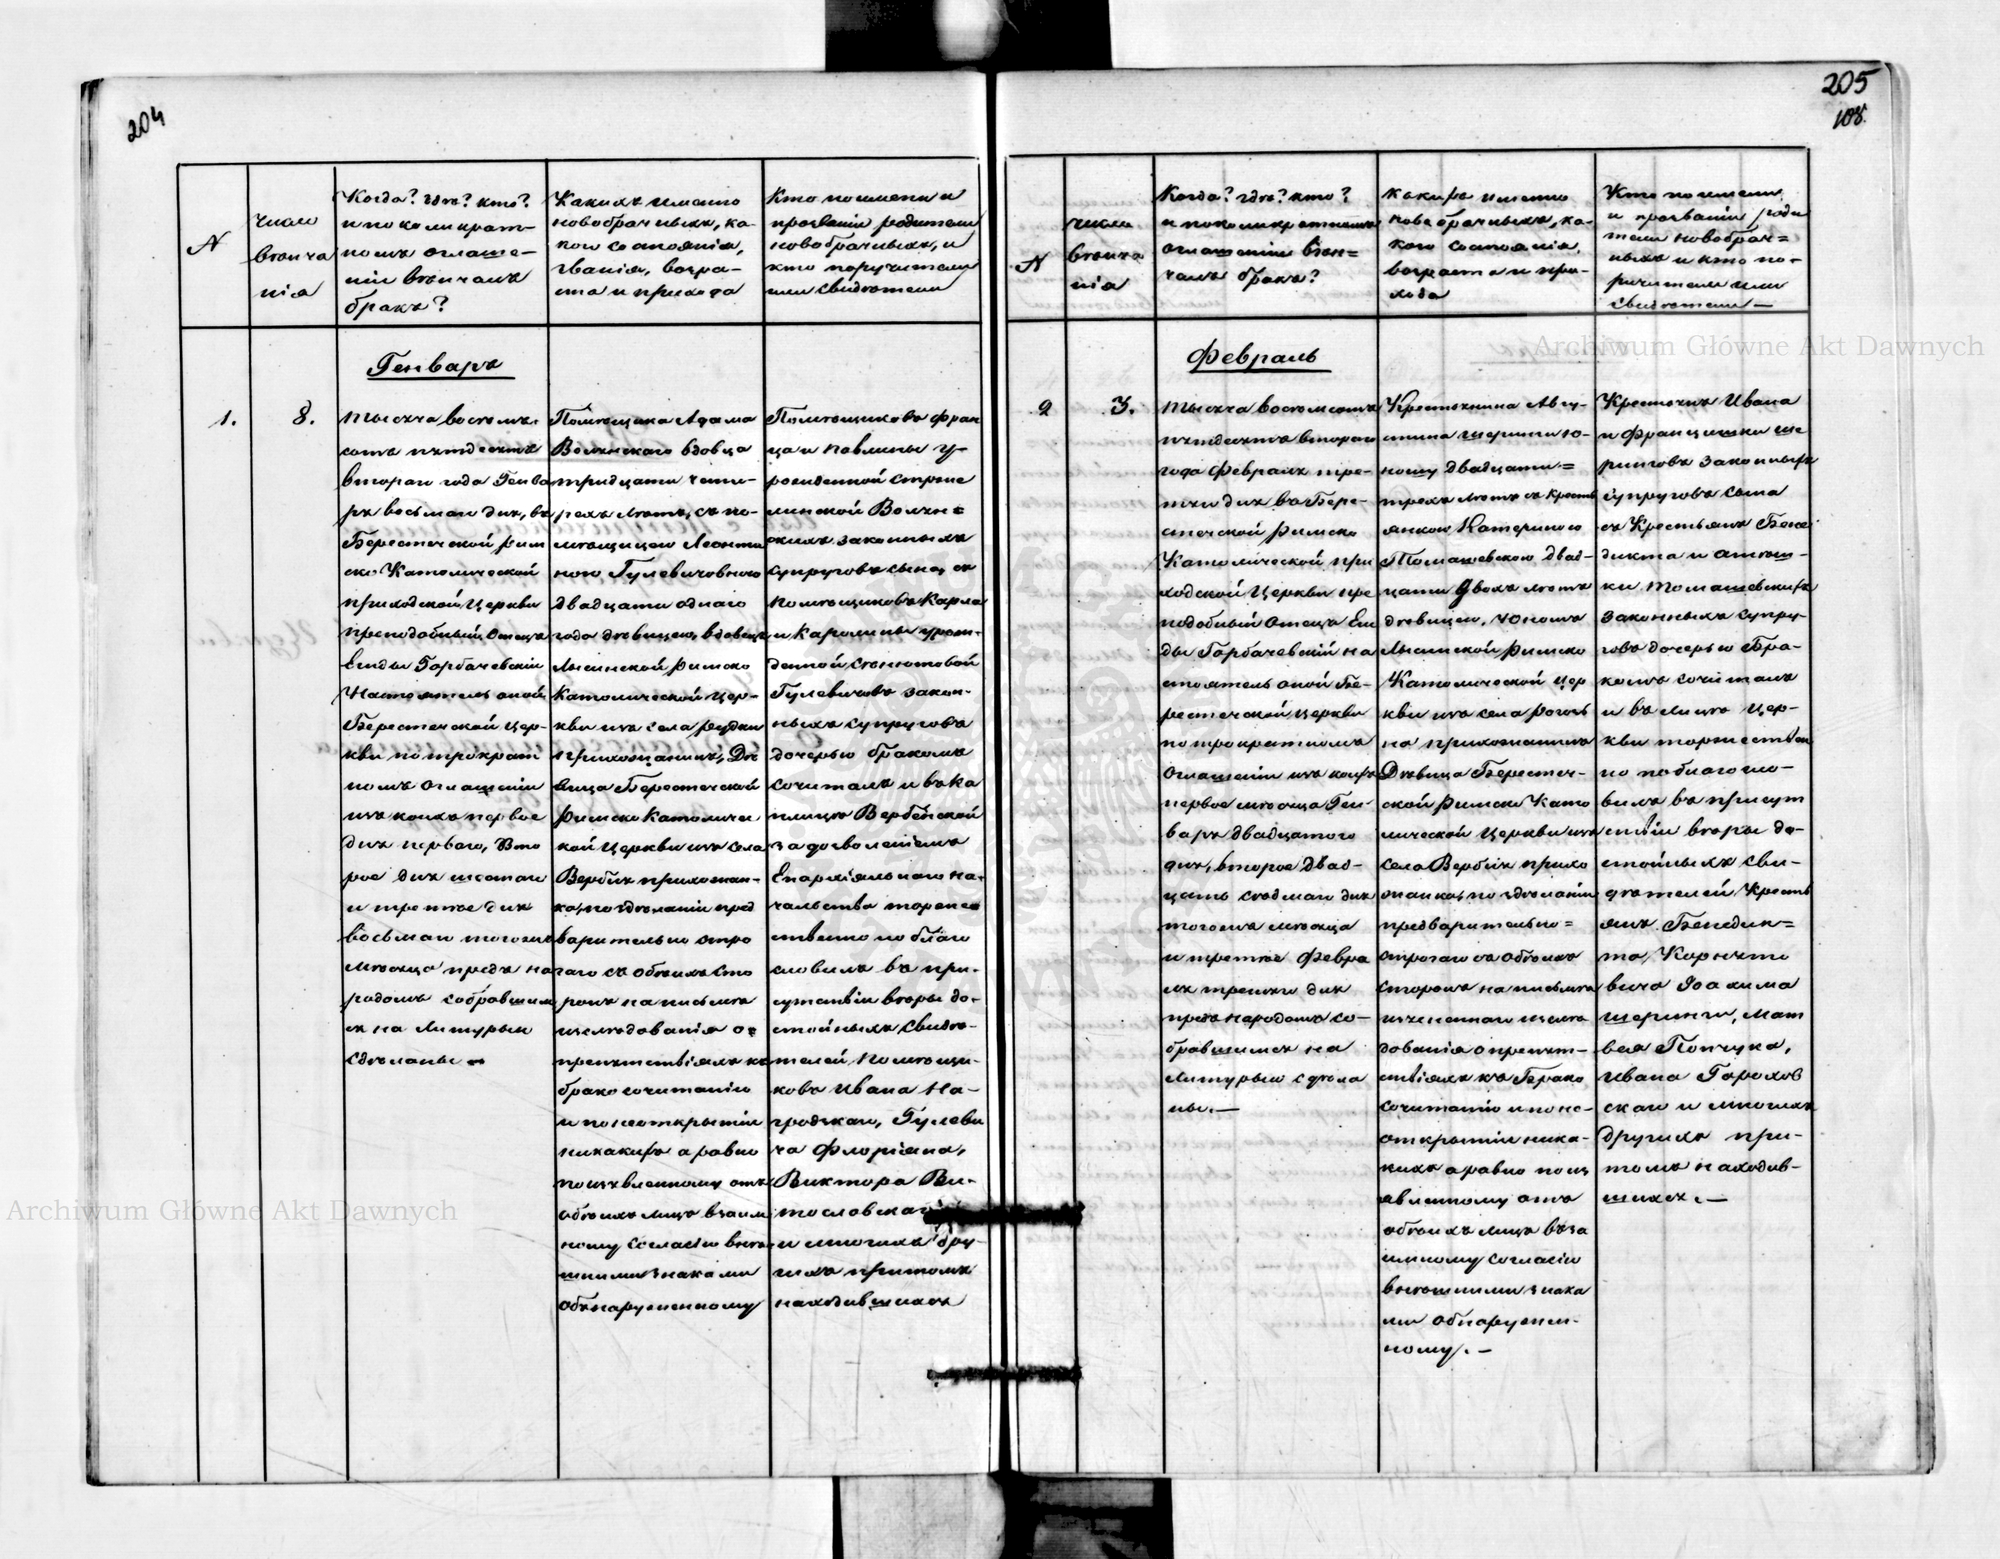 204
№
число
венча
нія
Когда? где? кто?
и по коликрат-
номъ оглаше-
ніи венчалъ
бракъ?
Какихъ именно
новобрачныхъ, ка-
кого состоянія,
званія, возра-
ста и прихода
Кто по имени и
прозваніи родители
новобрачныхъ, и
кто поручители
или свидетели
Генварь
1.
8.
тысяча восемь
сотъ пятдесятъ
втораго года Генва
ря восьмаго дня, въ
Берестечской Рим
ско Католической
приходской Церкви
преподобный Отецъ
Горбачевскій
Настоятель оной
Берестечской Цер-
кви по трократ
номъ оглашеніи
изъ коихъ первое
дня перваго, Вто
рое дня шестаго
и третое дня
восьмаго тогожъ
месяца предъ на
родомъ собравшим
ся на Литургіи
сделаны
Помещика Адама
Волянскаго вдовца
тридцати четы-
рехъ летъ, съ по-
мещицею Леонти
ною Гулевичовною
двадцати однаго
года девицею, вдовецъ
Римско
Католической Цер-
кви изъ села Рудки
прихожанинъ, Де
вица Берестечской
Римско Католичес
кой Церкви изъ села
Вербня прихожан-
ка, по зделаніи пред
варительно стро
гаго съ обеихъ сто
ронъ на письме
изследованія о
препятствіяхъ къ
бракосочитанію
и по неоткрытіи
никакихъ а равно
по изъявленному отъ
обеихъ лицъ взаим
ному согласію внеш
ними знаками
обнаруженному
Помещиковъ Фран
ца и Павлины у-
рожденной Строже
минской Волян=
скихъ законныхъ
супруговъ сына, съ
помещиковъ Карла
и Каролины урож-
денной
Гулевичовъ закон-
ныхъ супруговъ
дочерью бракомъ
сочиталъ и въ Ка
плице Вербенской
за дозволеніемъ
Епархіяльнаго на-
чальства торжес
ственно поблаго
словилъ въ при-
сутствіи веры до-
стойныхъ свиде-
телей Помещи-
ковъ Ивана На-
гродзкаго, Гулеви
ча Флоріяна,
Виктора Ви-
тославскаго
и многихъ дру-
гихъ притомъ
находившихся
205
108.
№
число
венча
нія
Когда? где? кто?
и по коликратномъ
оглашеніи вен=
чалъ бракъ?
какихъ именно
новобрачныхъ, ка-
кого состоянія,
возраста и при-
хода
Кто по имени
и прозваніи роди
тели новобрач=
ныхъ и кто по-
ручители или
свидетели —
Февраль
2
3.
тысяча восемсотъ
пятдесятъ втораго
года Февраля тре-
тяго дня въ Бере-
стечской Римско
Католической при
ходской Церкви пре
подобный Отецъ
Горбачевскій на
стоятель оной Бе-
рестечской Церкви
по трократномъ
оглашеніи изъ коихъ
первое месяца Ген-
варя двадцатого
дня, второе двад-
цать седмаго дня
тогожъ месяца
и третое Февра
ля третяго дня
предъ народомъ со-
бравшимся на
Литургію сдела
ны. —
Крестьянина Авгу-
стина Шеринга ю-
ношу двадцати=
трехъ летъ съ крестъ
янкою Катериною
Томашевскою двад-
цати двохъ летъ
девицею, юноша
Римско
Католической Цер
кви изъ села
на прихожанинъ
Девица Берестеч-
ской Римско Като
лической Церкви изъ
села Вербня прихо
жанка, по зделаніи
предварительно=
строгаго съ обеихъ
сторонъ на письме
изследо
дованія о препят-
ствіяхъ къ Брако
сочитанію и по не-
открытіи ника-
кихъ а равно по изъ
явленному отъ
обеихъ лицъ вза
имному согласію
внешними знака
ми обнаружен-
ному. —
Крестьянъ Ивана
и Францишки Ше
ринговъ законныхъ
супруговъ сына
съ Крестьянъ Бене
дикта и
ки Томашевскихъ
законныхъ супру-
говъ дочерью Бра-
комъ сочиталъ
и въ лице Цер-
кви торжествен
но поблагосло-
вилъ въ присут
ствіи веры до-
стойныхъ сви-
детелей Кресть
янъ Бенедик=
та,
вича Іоахима
Шеринги, Мат
вея Попчука,
Ивана Горохов
скаго и многихъ
другихъ при-
томъ находив-
шихся. —
Archiwum Główne Akt Dawnych
Archiwum Główne Akt Dawnych